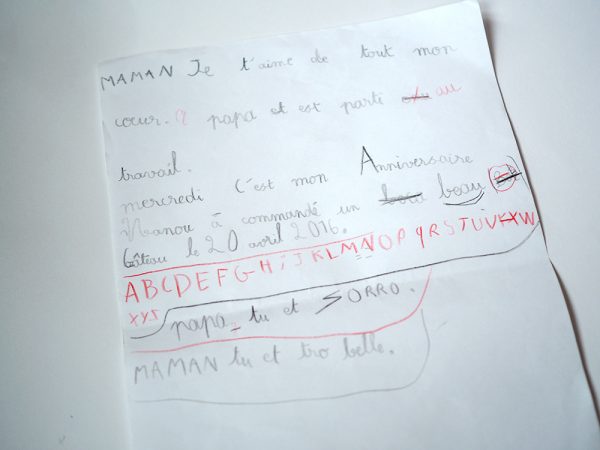 MAMAN Je t'aime de tout mon
cœur. papa et est parti au
travail.
mercredi C'est mon Anniversaire
Manou à commandé un beau
Gâteau le 20 avril 2016.
ABCDEFGHiJKLMNOPqRSTUVXW
XYZ
papa tu et ZORRO.
MAMAN tu et tro belle.